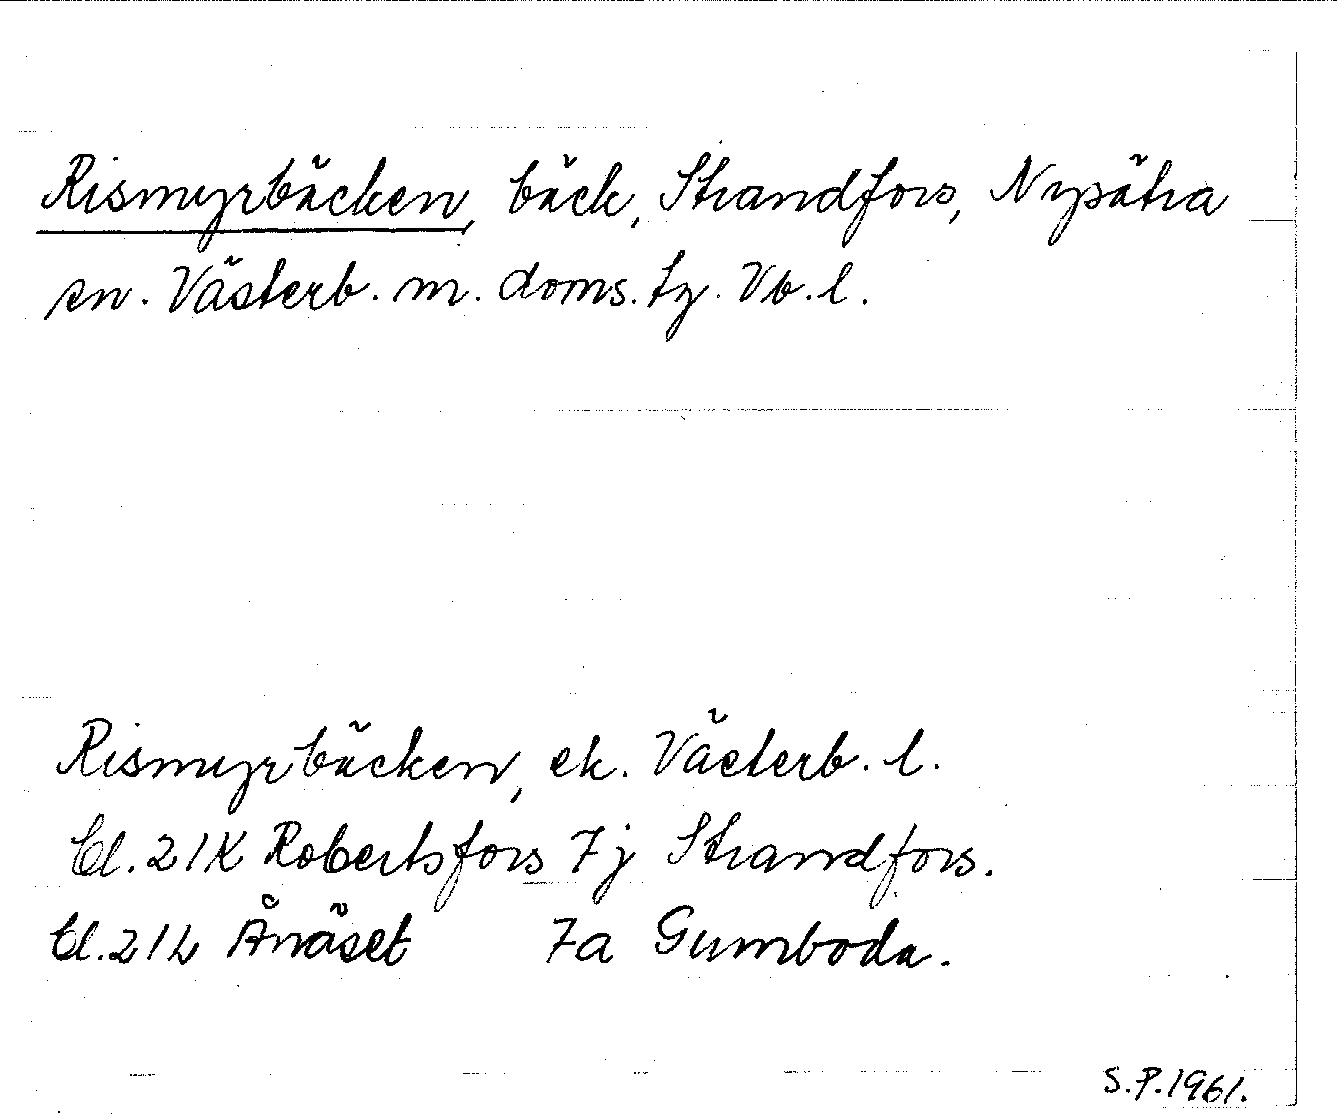 Rismyrbäcken, bäck, Strandfors, Nysätra
sn. Västerb. m. doms. tg. Vb. l.
Rismyrbäcken, ek. Västerb. l.
Bl. 21K Robertsfors 7j Strandfors.
Bl. 21L Ånäset 7a Gumboda.
S.P. 1961.